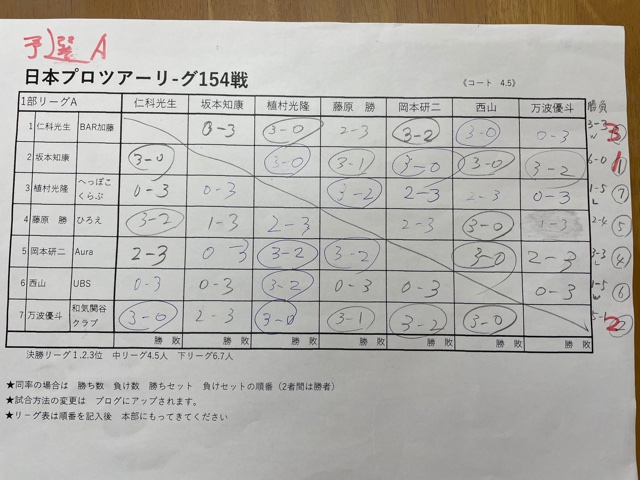 予選A
日本プロツアーリ-グ154戦
《コート 4.5》
1部リーグA 仁科光生 坂本知康 植村光隆 藤原 勝 岡本研二 西山 万波優斗 勝負
1 仁科光生 BAR加藤 0-3 3-0 2-3 3-2 3-0 0-3 3-3 W 3
2 坂本知康 3-0 3-0 3-1 3-0 3-0 3-2 6-0 1
3 植村光隆 へっぽこくらぶ 0-3 0-3 3-2 2-3 2-3 0-3 1-5 L 7
4 藤原 勝 ひろえ 3-2 1-3 2-3 2-3 3-0 1-3 2-4 5
5 岡本研二 Aura 2-3 0-3 3-2 3-2 3-0 2-3 3-3 L 4
6 西山 UBS 0-3 0-3 3-2 0-3 0-3 0-3 1-5 W 6
7 万波優斗 和気関谷クラブ 3-0 2-3 3-0 3-1 3-2 3-0 5-1 2
勝 敗 勝 敗 勝 敗 勝 敗 勝 敗 勝 敗 勝 敗
決勝リーグ1.2.3位 中リーグ4.5人 下リーグ6.7人
★同率の場合は 勝ち数 負け数 勝ちセット 負けセットの順番(2者間は勝者)
★試合方法の変更は ブログにアップされます。
★リーグ表は順番を記入後 本部にもってきてください